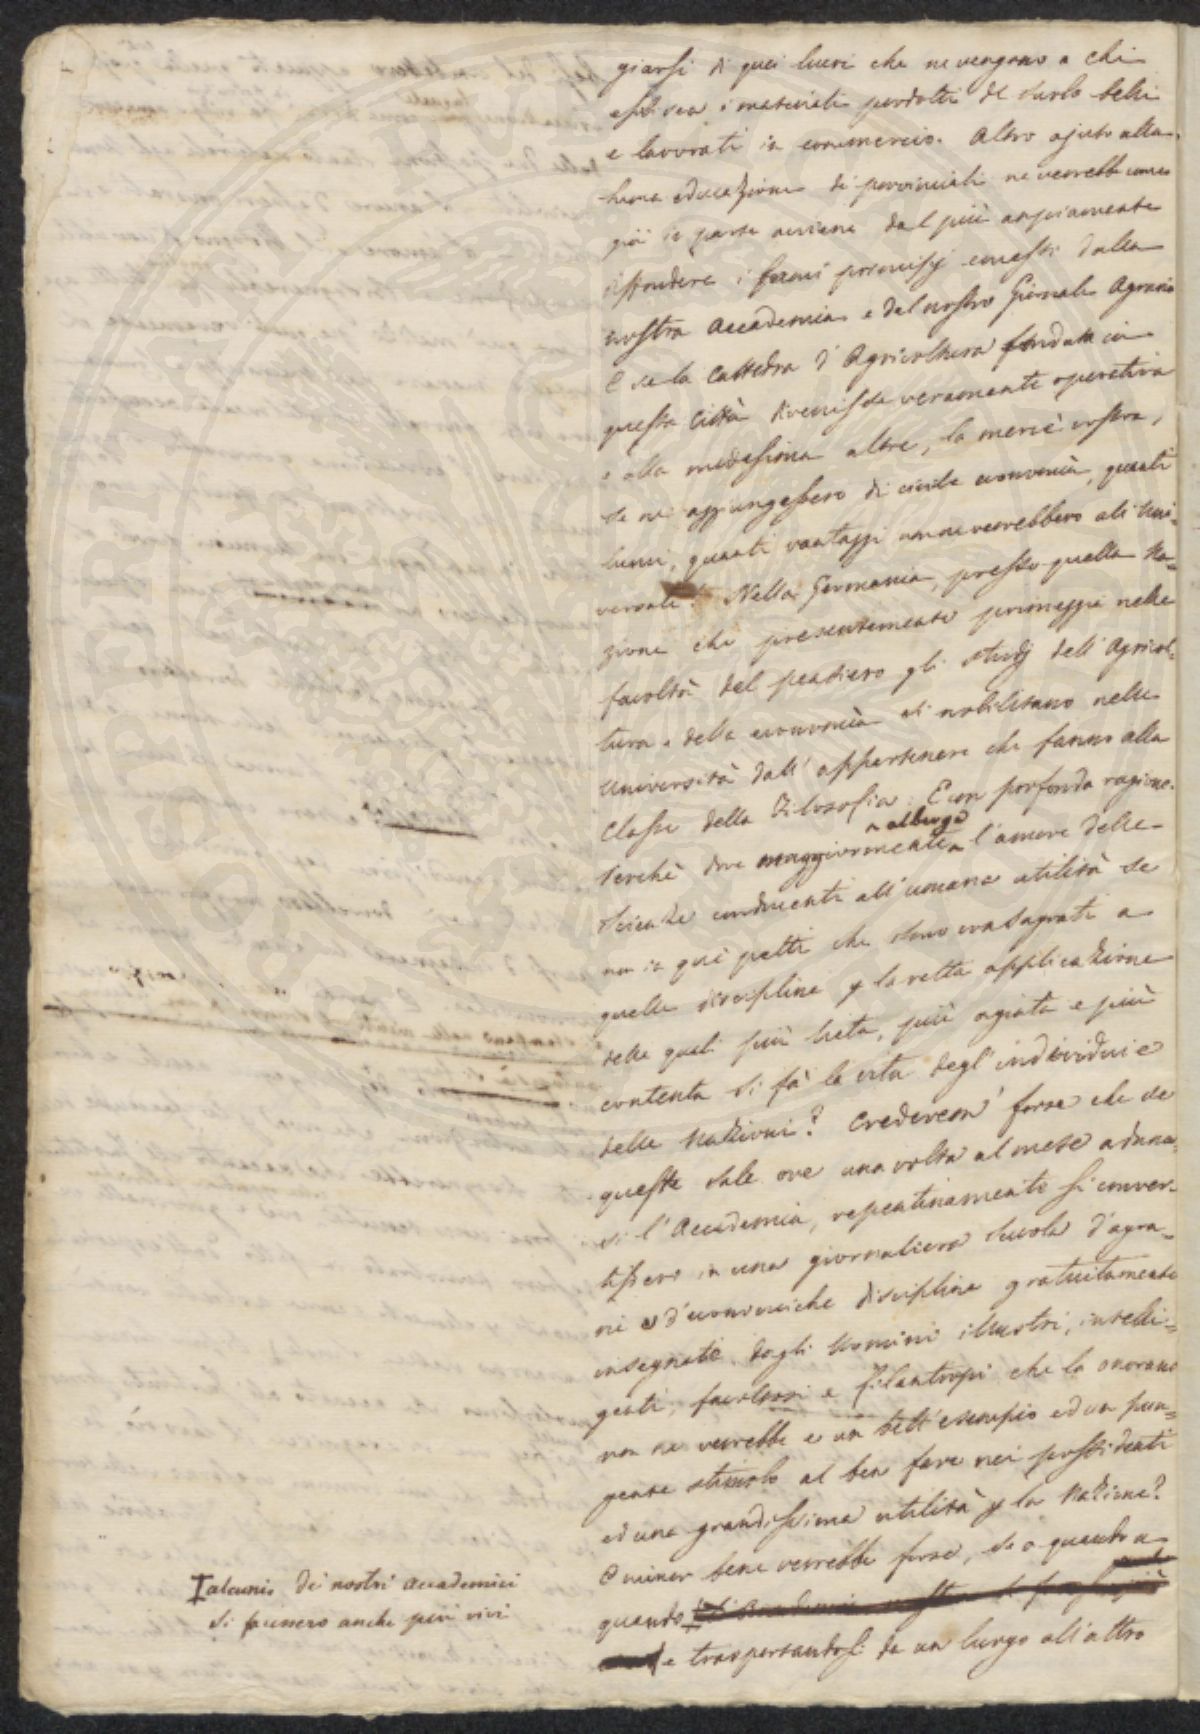 giarsi di quei lucri che ne vengono a chi
i materiali prodotti del suolo belli
e lavorati in commercio. Altro ajuto alla
buona educazione de' provinciali ne verrebbe come
già in parte avviene dal più ampiamente
diffondere i fumi emessi dalla
nostra Accademia e dal nostro Giornale Agrario
E se la Cattedra d'Agricoltura fondata in
questa Città divenisse veramente operativa
e alla medesima altre, la mercè vostra,
se ne aggiungessero di civile economia, quanti
lumi, quanti vantaggi non ne verrebbero all' uni=
versale! Nella Germania, presso quella Na=
zione che presentemente primeggia nelle
facoltà del pensiero gli studj dell'Agricol=
tura e della economia si nobilitano nelle
Università dall'appartenere che fanno alla
Classe della Filosofia. E con profonda ragione.
Perchè dove maggiormente alberga l'amore delle
scienze conducenti all'umana utilità se
non in quei petti che sono consagrati a
quelle discipline p la retta applicazione
delle quali più lieta, più agiata e più
contenta si fà la vita degl'individui e
delle Nazioni? Crederem' forse che se
queste sale ove una volta al mese aduna=
si l'Accademia, repentinamente si conver=
tissero in una giornaliera scuola d'agra=
rie e d'economiche discipline gratuitamente
insegnate dagli Uomini illustri, intelli=
genti, facoltosi e Filantropi che la onorano
non ne verrebbe e un bell'esempio ed un pun=
gente stimolo al ben fare nei possidenti
ed una grandissima utilità p la Nazione?
O minor bene verrebbe forse, se a quando a
quando
e trasportandosi da un luogo all'altro
alcunis dei nostri accademici
si facessero anche più vivi